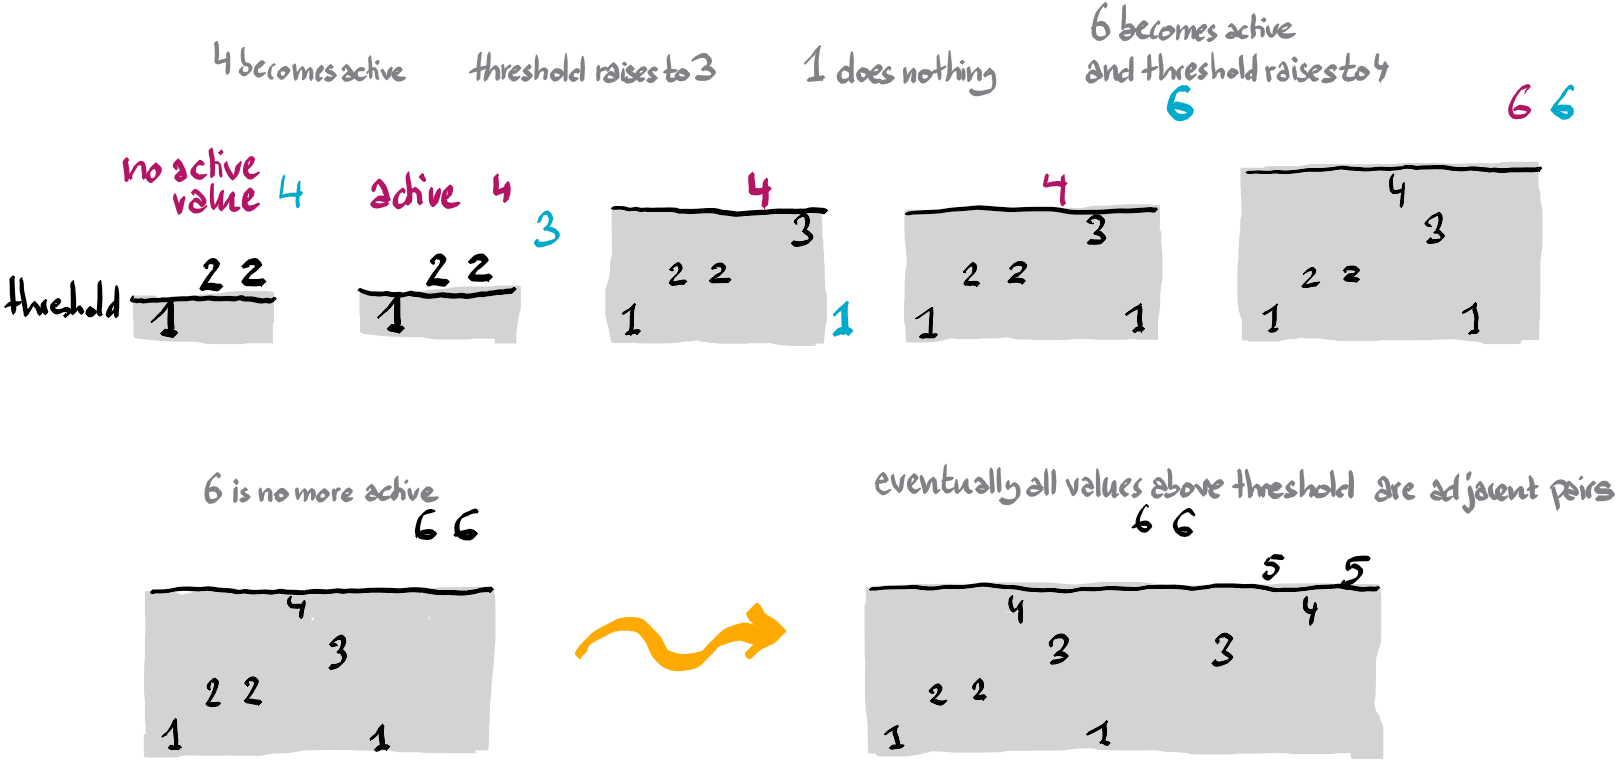 4 becomes active
threshold raises to 3
1 does nothing
6 becomes active
and threshold raises to 4
no active
value 4
2 2
threshold
1
active 4
3
2 2
1
4
3
2 2
1 1
4
3
2 2
1 1
6
6 6
4
3
2 2
1 1
6 is no more active
6 6
4
3
2 2
1 1
eventually all values above threshold are adjacent pairs
6 6
5 5
4 4
3 3
2 2
1 1